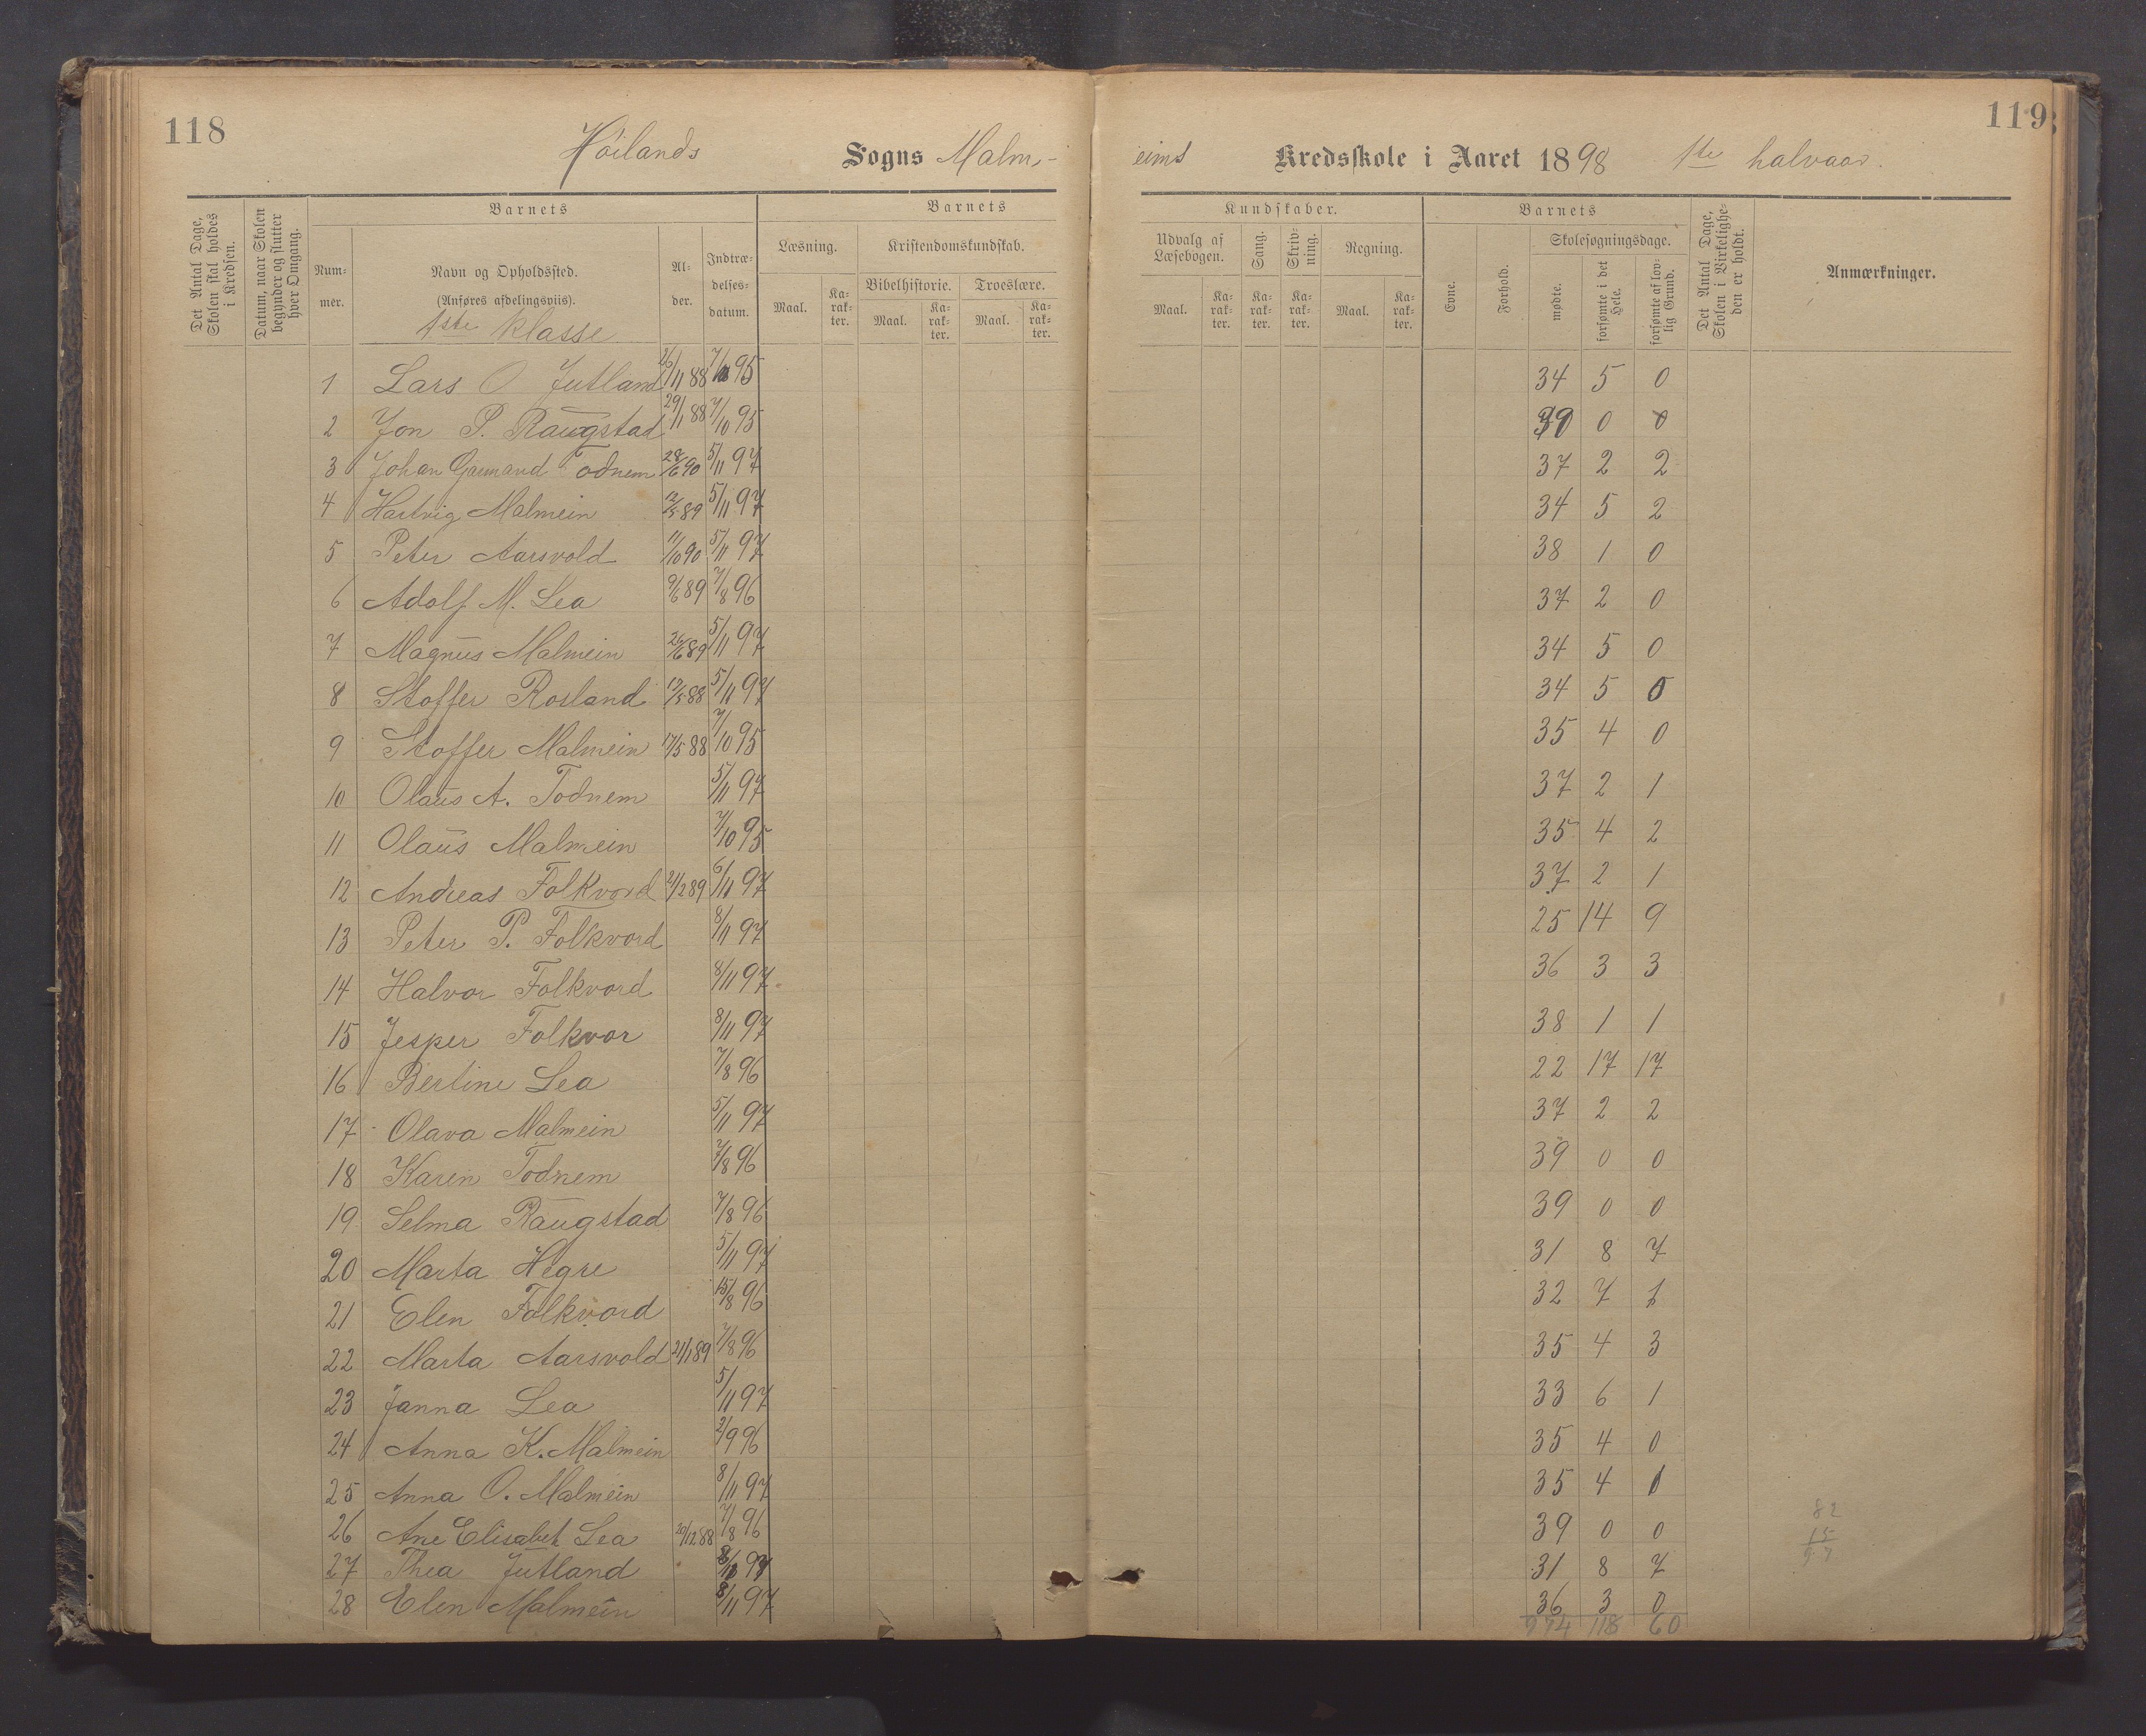 118
119
Höilands Sogns Malm- eims Kredsskole i Aaret 1898 1ste halvaar.
Det Antal Dage, Skolen skal holdes i Kredsen.
Datum, naar Skolen begynder og slutter hver Omgang.
Barnets
Nummer.
Navn og Opholdssted.
(Anføres afdelingsviis).
1ste Klasse
Alder.
Indtrædelsesdatum.
Barnets
Læsning.
Maal.
Karakter.
Kristendomskundskab.
Bibelhistorie.
Maal.
Karakter.
Troeslære.
Maal.
Karakter.
Kundskaber.
Udvalg af Læsebogen.
Maal.
Karakter.
Sang.
Karakter.
Skrivning.
Karakter.
Regning.
Maal.
Karakter.
Barnets
Evne.
Forhold.
Skolesøgningsdage.
mødte.
forsømte i det Hele.
forsømte af lovlig Grund.
Det Antal Dage, Skolen i Virkeligheden er holdt.
Anmærkninger.
1 Lars O Jutland 26/11 88 7/10 95 34 5 0
2 Jon P. Raugstad 29/1 88 7/10 95 39 0 0
3 Johan Todnem 28/6 90 5/11 97 37 2 2
4 Hartvig Malmein 12/5 89 5/11 97 34 5 2
5 Peter Aarsvold 11/10 90 5/11 97 38 1 0
6 Adolf M. Lea 9/6 89 7/8 96 37 2 0
7 Magnus Malmein 26/6 89 5/11 97 34 5 0
8 Stoffer Rosland 12/5 88 5/11 97 34 5 0
9 Stoffer Malmein 17/5 88 7/10 95 35 4 0
10 Olaus A. Todnem 5/11 97 37 2 1
11 Olaus Malmein 7/10 95 35 4 2
12 Andreas Folkvord 21/2 89 6/11 97 37 2 1
13 Peter P. Folkvord 8/11 97 25 14 9
14 Halvor Folkvord 8/11 97 36 3 3
15 Jesper Folkvor 8/11 97 38 1 1
16 Bertine Lea 7/8 96 22 17 17
17 Olava Malmein 5/11 97 37 2 2
18 Karen Todnem 7/8 96 39 0 0
19 Selma Raugstad 7/8 96 39 0 0
20 Marta Hegre 5/11 97 31 8 7
21 Elen Folkvord 15/8 96 32 7 1
22 Marta Aarsvold 21/1 89 7/8 96 35 4 3
23 Janna Lea 5/11 97 33 6 1
24 Anna K. Malmein 2/9 96 35 4 0
25 Anna O. Malmein 8/11 97 35 4 1
26 Ane Elisabeth Lea 20/12 88 7/8 96 39 0 0
27 Thea Jutland 8/11 97 31 8 7
28 Elen Malmein 8/11 97 36 3 0
974 118 60
82
15
97